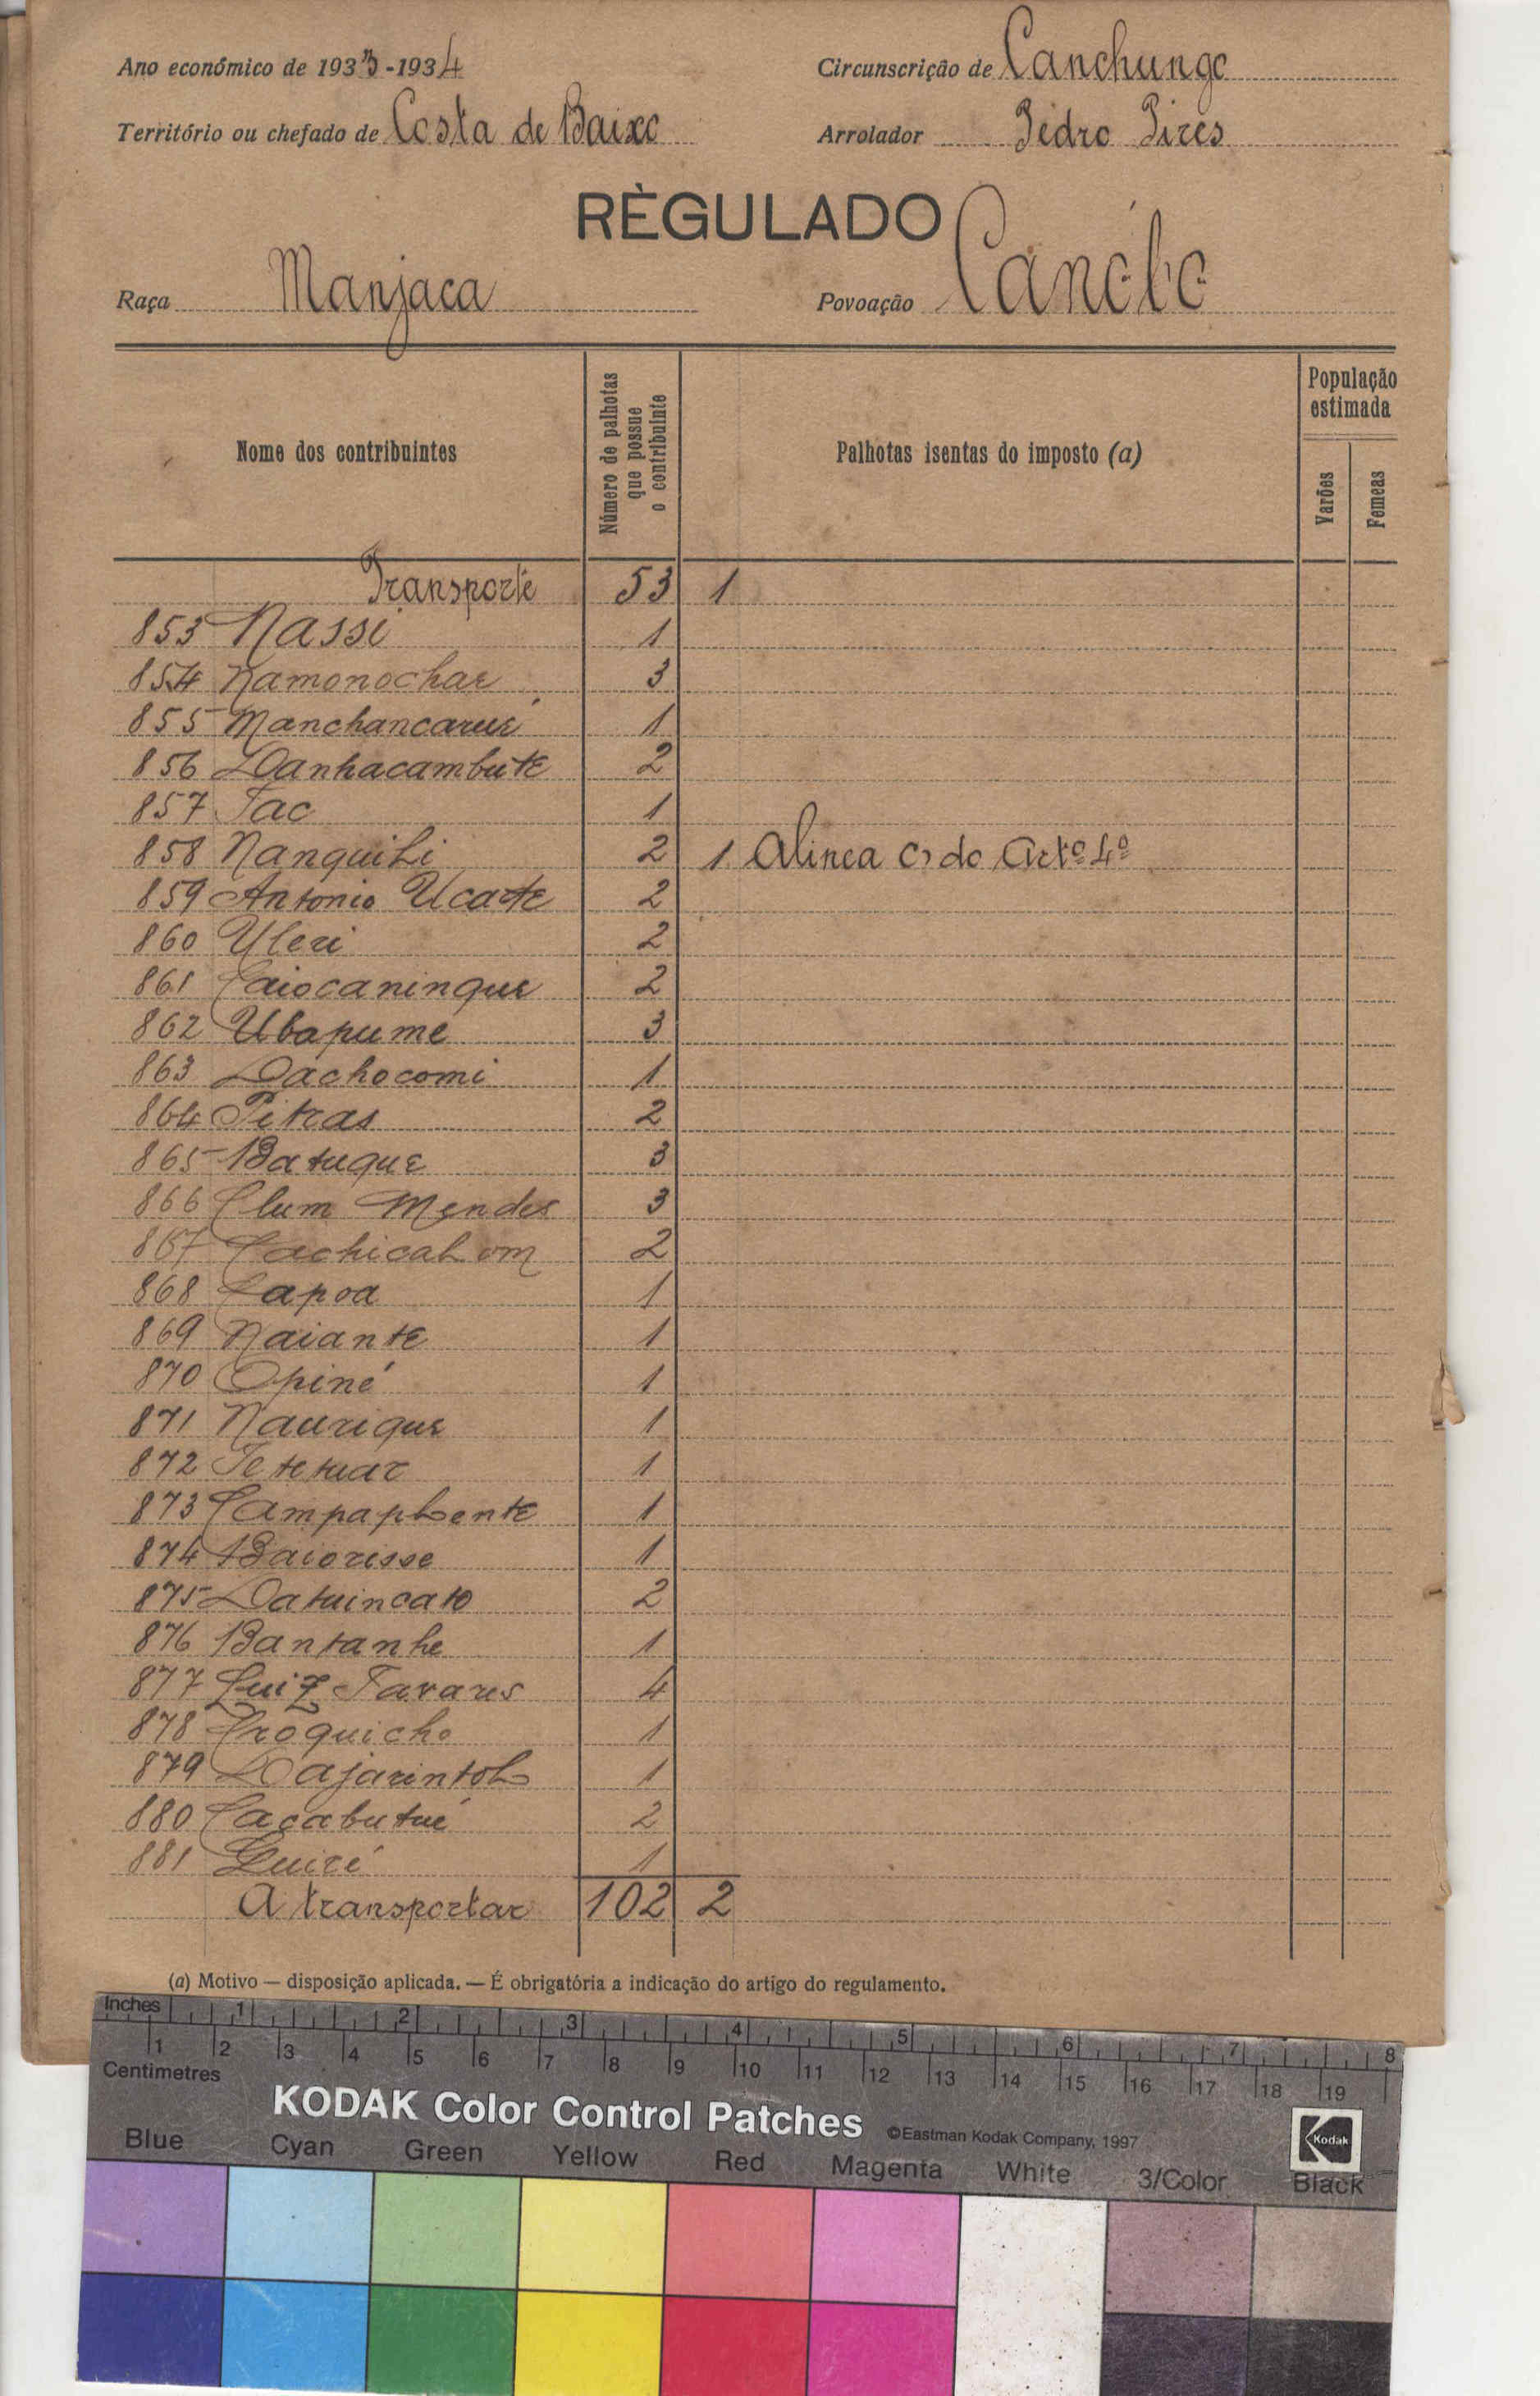 Ano económico de 1933-1934 Circunscrição de Canchungo
Território ou chefado de Costa de Baixo Arrolador Pedro Pires
RÈGULADO
Raça Manjaca Povoação Canóbo
Nome dos contribuintes
Número de palhotas que possue o contribuinte
Palhotas isentas do imposto (a)
População estimada
Varões
Femeas
Transporte 53 1
853 Nassi 1
854 Namonochae 3
855 Manchancarué 1
856 Danhacambute 2
857 Tac 1
858 Nanquili 2 1 Alinea c) do Artº 4º
859 Antonio Ucate 2
860 Uleri 2
861 Caiocaninque 2
862 Ubapume 3
863 Dachocomi 1
864 Pitras 2
865 Batuque 3
866 Clum Mendes 3
867 Cachicalom 2
868 Capoa 1
869 Naiante 1
870 Opiné 1
871 Naurique 1
872 Tetetuar 1
873 Campaplente 1
874 Baiorisse 1
875 Datuincato 2
876 Bantanhe 1
877 Luiz Tavares 4
878 Croquicho 1
879 Dajarintol 1
880 Caçabutué 2
881 Guiré 1
A transportar 102 2
(a) Motivo — disposição aplicada. — É obrigatória a indicação do artigo do regulamento.
Inches 1 2 3 4 5 6 7 8
1 2 3 4 5 6 7 8 9 10 11 12 13 14 15 16 17 18 19
Centimetres
KODAK Color Control Patches ©Eastman Kodak Company, 1997 Kodak
Blue Cyan Green Yellow Red Magenta White 3/Color Black